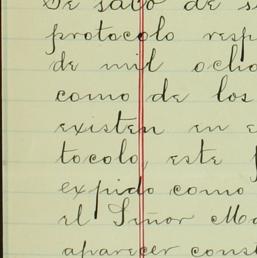 Se saco de s
protocolo resp
de mil ocho
como de los
existen en e
tocolo, este f
expido como
el Señor Ma
aparecer cons